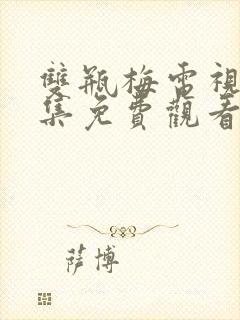 雙瓶梅電視
集免費觀看
薩博